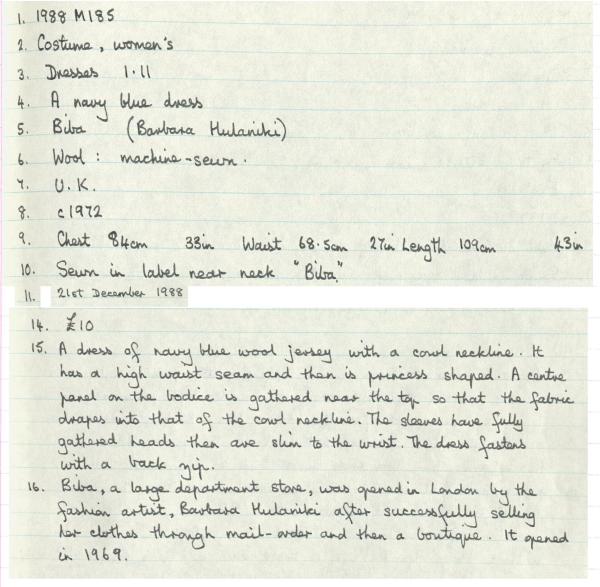 1. 1988 M185
2. Costume, women's
3. Dresses 1.11
4. A navy blue dress
5. Biba (Barbara Hulaniki)
6. Wool : machine-sewn.
7. U.K.
8. c1972
9. Chest 84cm 33in Waist 68.5cm 27in Length 109cm 43in
10. Sewn in label near neck "Biba"
11. 21st December 1988
14. £10
15. A dress of navy blue wool jersey with a cowl neckline. It
has a high waist seam and then is princess shaped. A centre
panel on the bodice is gathered near the top so that the fabric
drapes into that of the cowl neckline. The sleeves have fully
gathered heads then are slim to the wrist. The dress fastens
with a back zip.
16. Biba, a large department store, was opened in London by the
fashion artist, Barbara Hulaniki after successfully selling
her clothes through mail-order and then a boutique. It opened
in 1969.